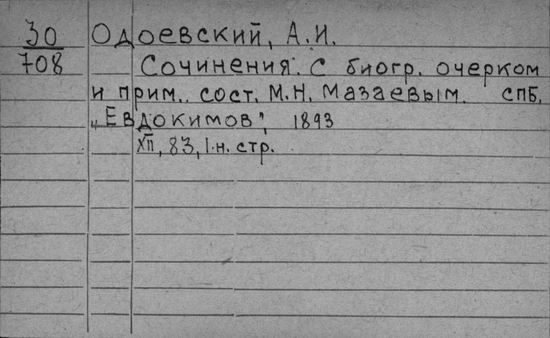 30 Одоевский, А.И.
708 Сочинения. С биогр. очерком
и прим., сост. М.Н. Мазаевым. СПб,
„Евдокимов”, 1893
XII, 83, 1 н. стр.